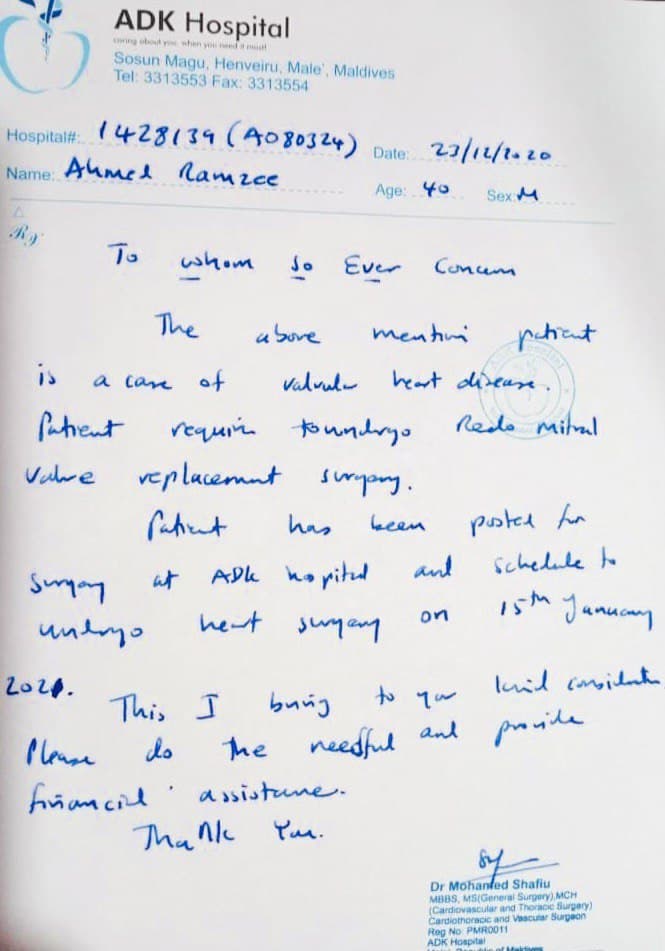 ADK Hospital
caring about you, when you need it most!
Sosun Magu, Henveiru, Male', Maldives
Tel: 3313553 Fax: 3313554
Hospital#: 1428139 (A080324) Date: 23/12/2020
Name: Ahmed Ramzee Age: 40 Sex: M
Rx
To whom so Ever Concern
The above mention patient
is a case of valvular heart disease.
Patient require to undergo Redo mitral
valve replacement surgery.
Patient has been posted for
surgery at ADK hospital and schedule to
undergo heart surgery on 15th January
2021.
This I bring to your kind consideration
Please do the needful and provide
financial assistance.
Thank You.
Dr Mohamed Shafiu
MBBS, MS(General Surgery),MCH
(Cardiovascular and Thoracic Surgery)
Cardiothoracic and Vascular Surgeon
Reg No: PMR0011
ADK Hospital
Male', Republic of Maldives